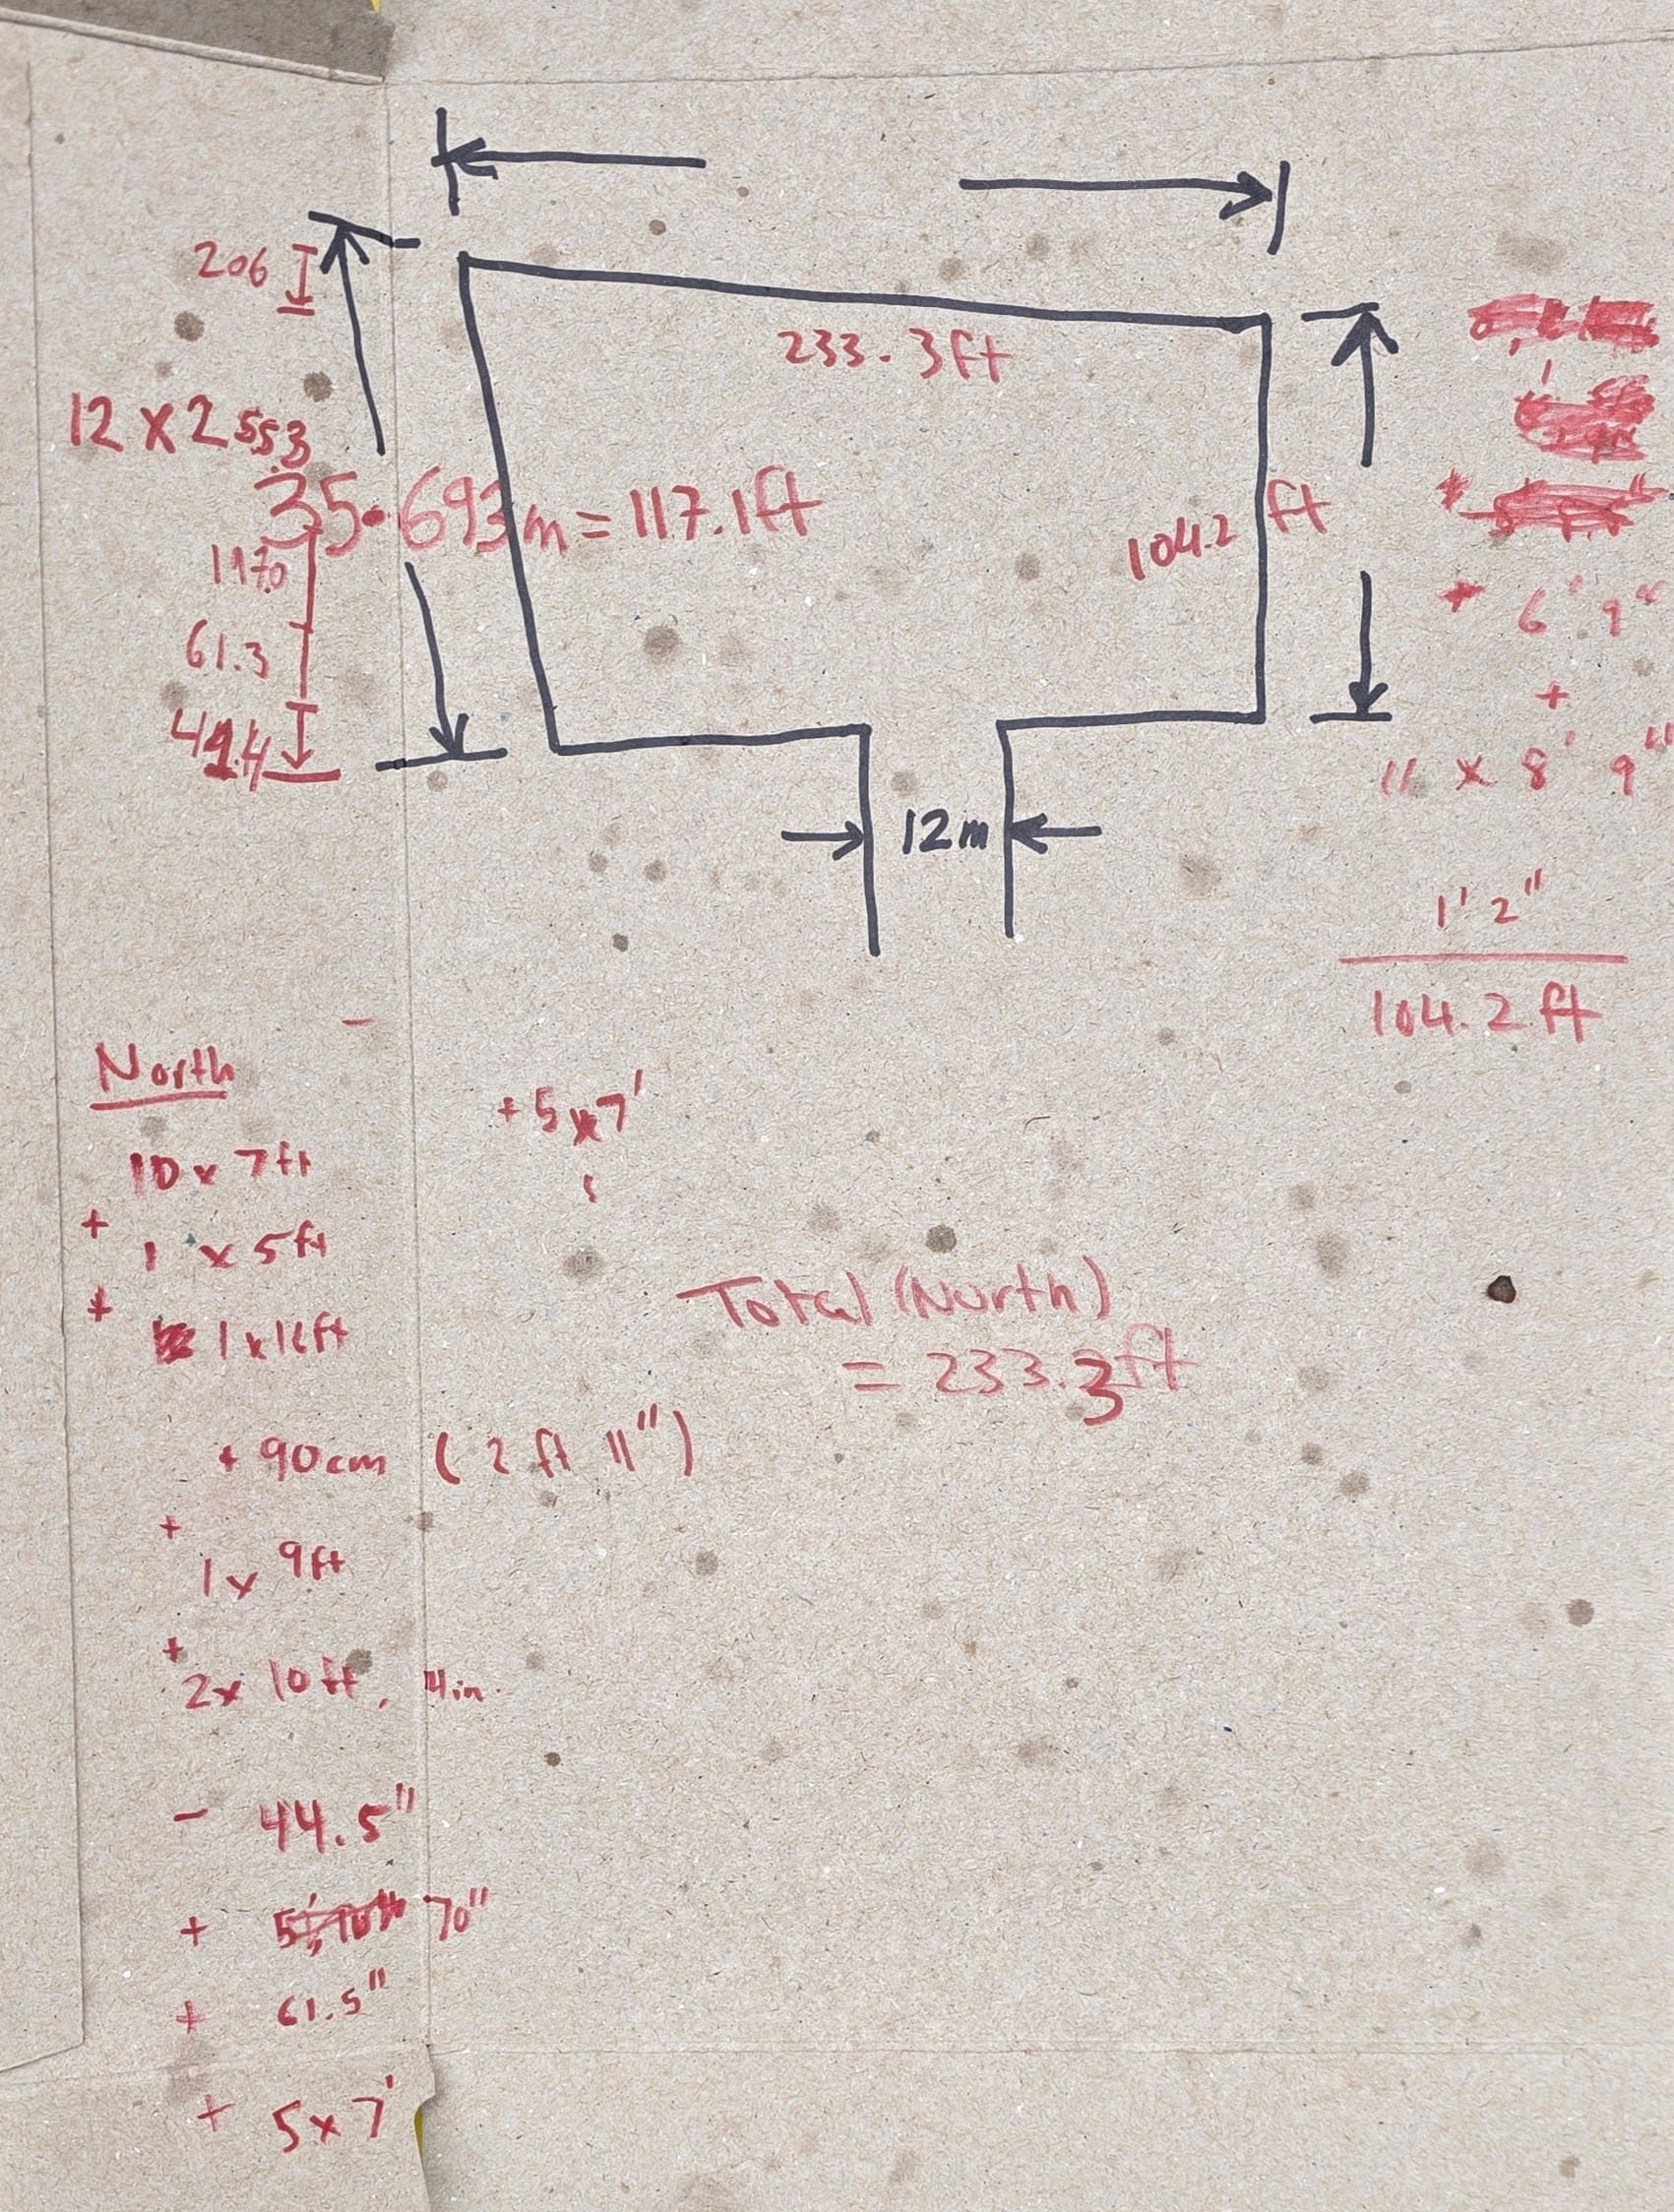 206
233.3ft
12 x 2553
35.693m = 117.1ft
104.2 ft
1170
61.3
6' 9"
+
11 x 8' 9"
12m
1' 2"
104.2 ft
North
+ 5 x 7'
10 x 7ft
+ 1 x 5ft
+ 1 x 16ft
Total (North)
= 233.3ft
+ 90cm ( 2 ft 11" )
+ 1 x 9ft
+ 2x 10 ft, 4in.
- 44.5"
+ 70"
+ 61.5"
+ 5 x 7'